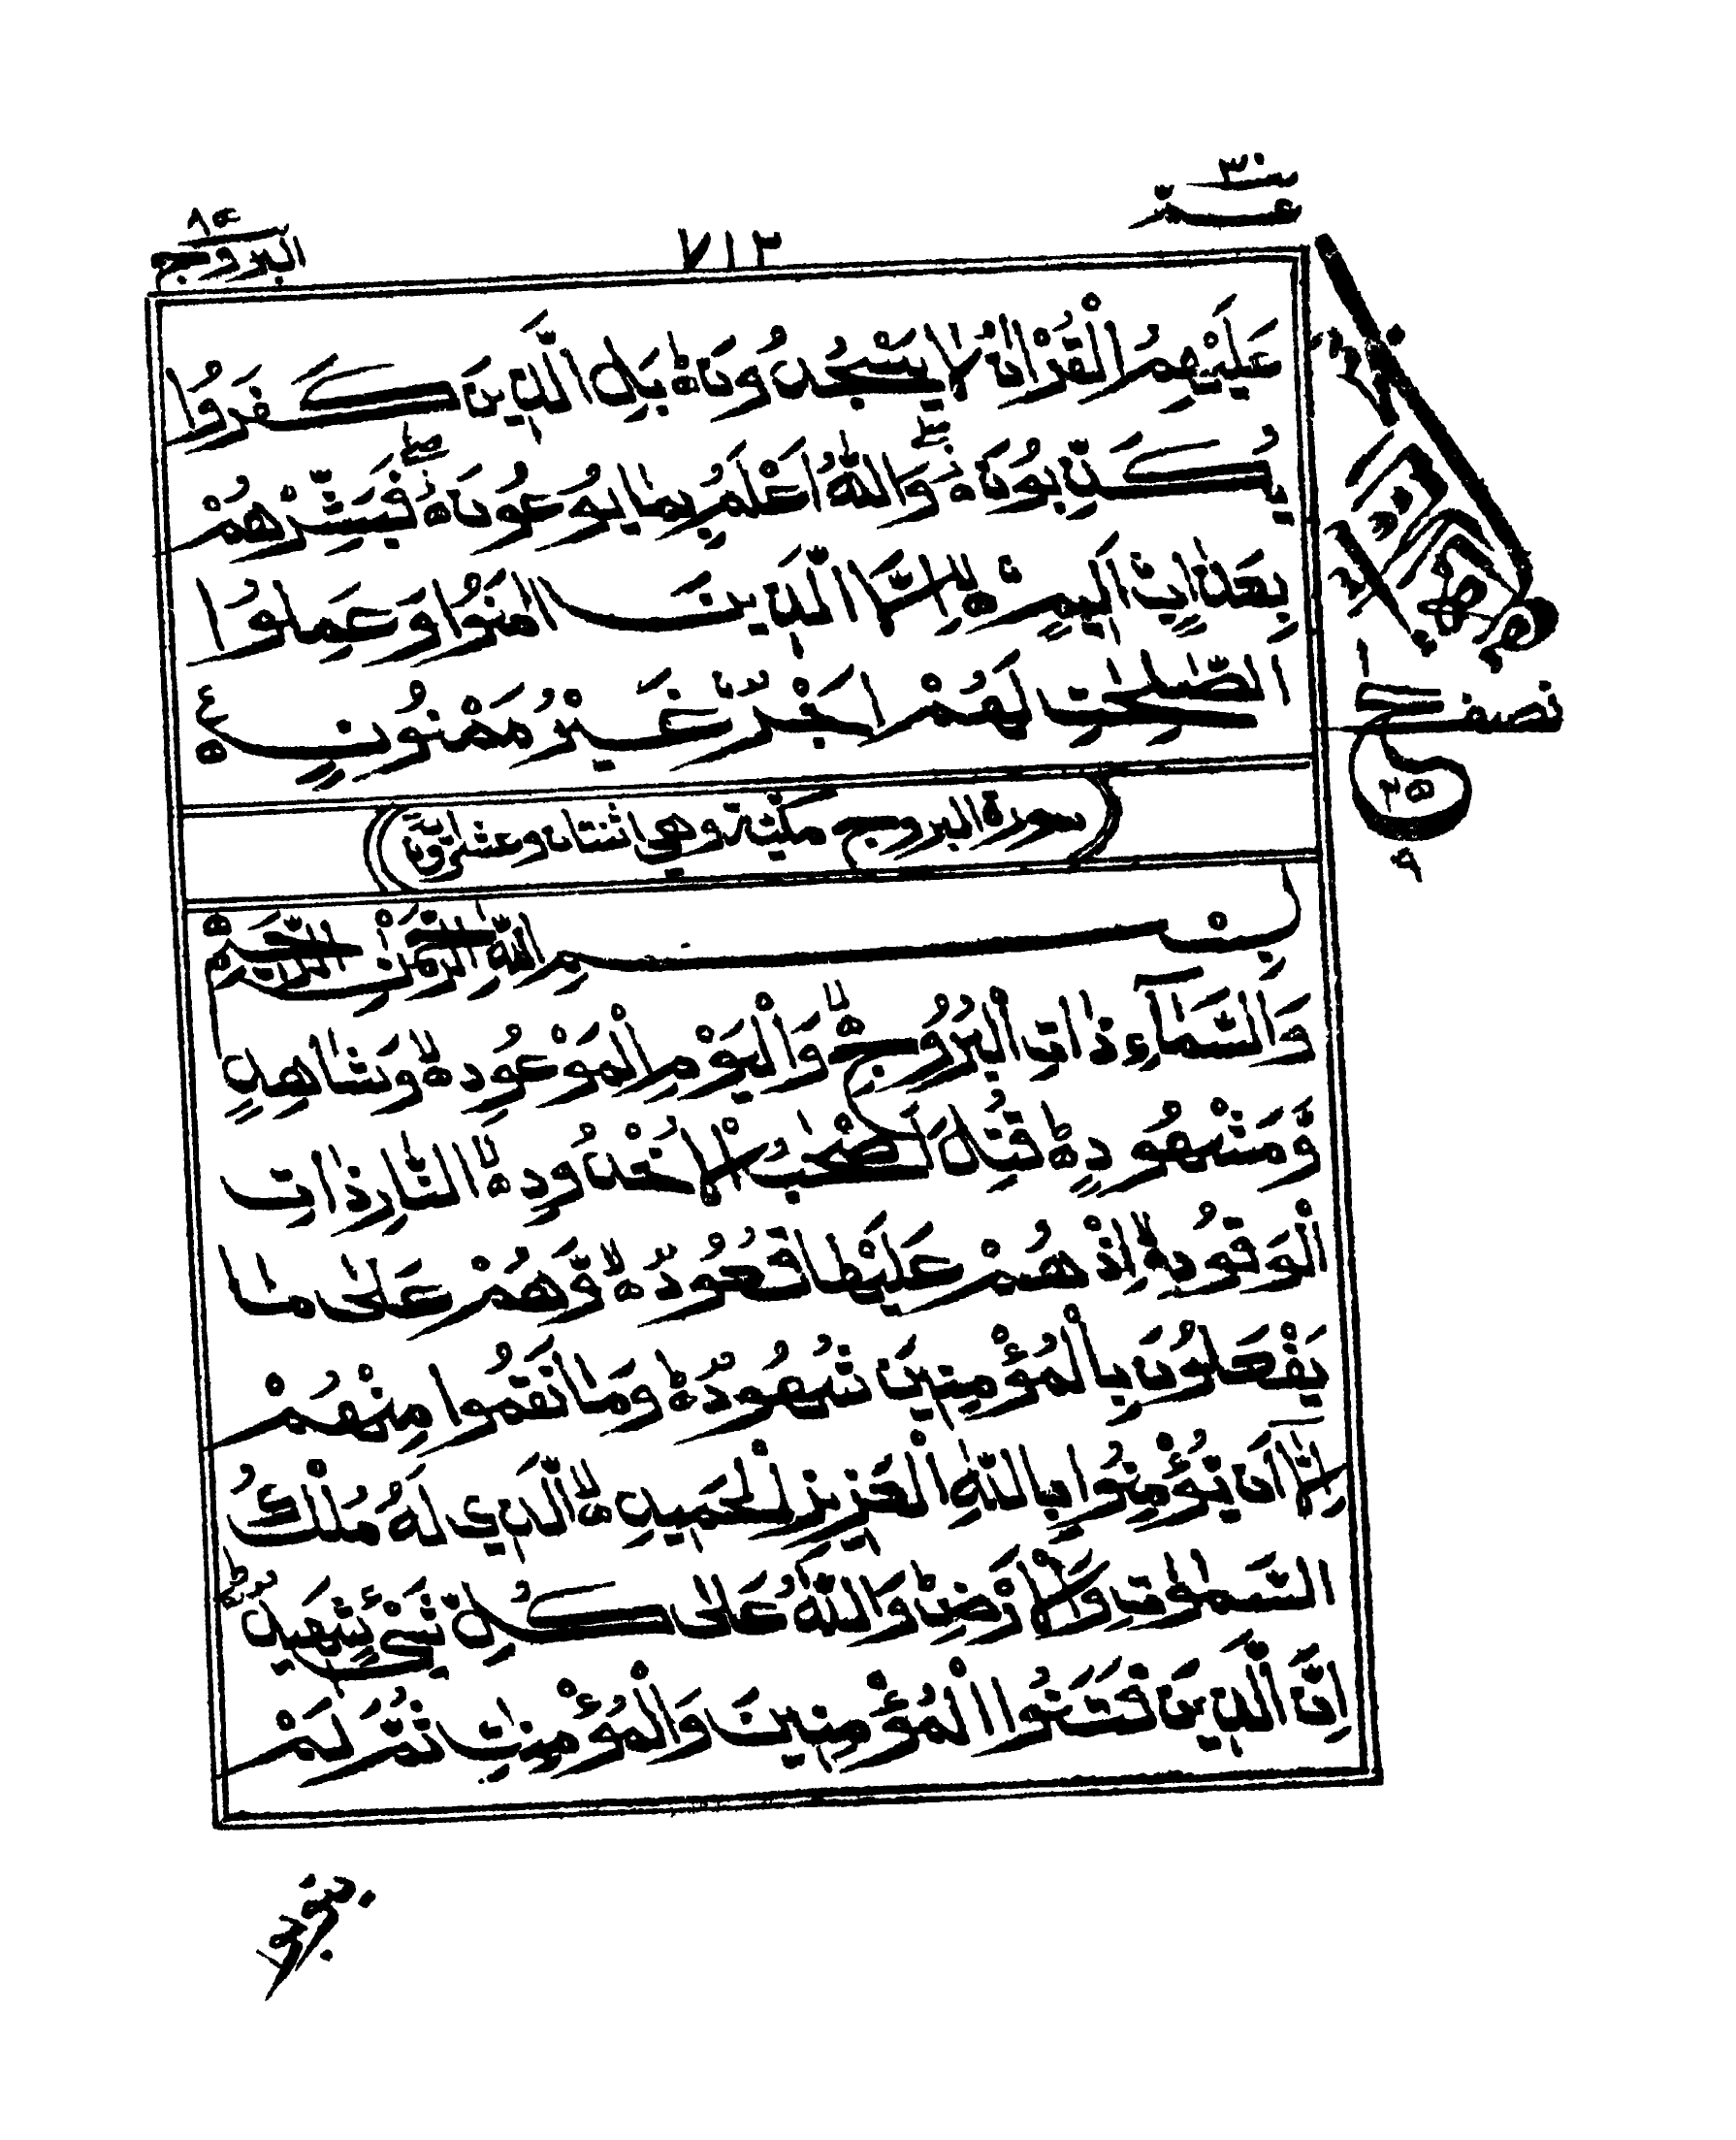 عمّ ٣٠
٧١٢
البروج ٨٥
عَلَيْهِمُ الْقُرْاٰنُ لَا يَسْجُدُوْنَ ۩ ؕ بَلِ الَّذِيْنَ كَفَرُوْا
يُكَذِّبُوْنَ ۖ وَاللّٰهُ اَعْلَمُ بِمَا يُوْعُوْنَ ۖ فَبَشِّرْهُمْ
بِعَذَابٍ اَلِيْمٍ ۙ اِلَّا الَّذِيْنَ اٰمَنُوْا وَ عَمِلُوا
الصّٰلِحٰتِ لَهُمْ اَجْرٌ غَيْرُ مَمْنُوْنٍ ع
نصف
٢٥
٩
سورة البروج مكيّة وهي اثنتان وعشرون اٰية
بِسْمِ اللّٰهِ الرَّحْمٰنِ الرَّحِيْمِ
وَالسَّمَآءِ ذَاتِ الْبُرُوْجِ ۙ وَالْيَوْمِ الْمَوْعُوْدِ ۙ وَشَاهِدٍ
وَّمَشْهُوْدٍ ؕ قُتِلَ اَصْحٰبُ الْاُخْدُوْدِ ۙ النَّارِ ذَاتِ
الْوَقُوْدِ ۙ اِذْ هُمْ عَلَيْهَا قُعُوْدٌ ۙ وَّهُمْ عَلٰى مَا
يَفْعَلُوْنَ بِالْمُؤْمِنِيْنَ شُهُوْدٌ ؕ وَمَا نَقَمُوْا مِنْهُمْ
اِلَّآ اَنْ يُّؤْمِنُوْا بِاللّٰهِ الْعَزِيْزِ الْحَمِيْدِ ۙ الَّذِيْ لَهٗ مُلْكُ
السَّمٰوٰتِ وَالْاَرْضِ ؕ وَاللّٰهُ عَلٰى كُلِّ شَيْءٍ شَهِيْدٌ ؕ
اِنَّ الَّذِيْنَ فَتَنُوا الْمُؤْمِنِيْنَ وَالْمُؤْمِنٰتِ ثُمَّ لَمْ